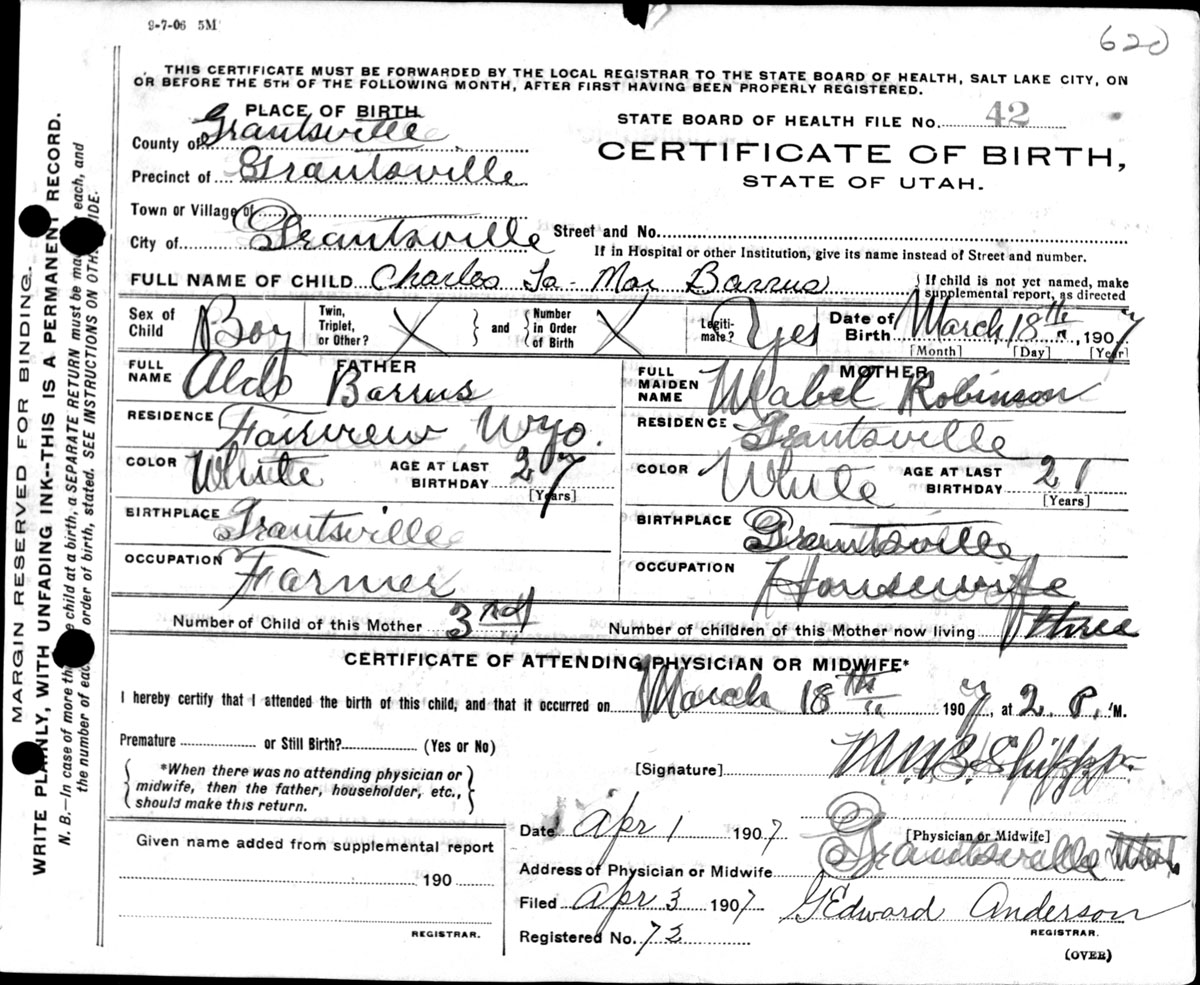 9-7-06 5M
620
THIS CERTIFICATE MUST BE FORWARDED BY THE LOCAL REGISTRAR TO THE STATE BOARD OF HEALTH, SALT LAKE CITY, ON
OR BEFORE THE 5TH OF THE FOLLOWING MONTH, AFTER FIRST HAVING BEEN PROPERLY REGISTERED.
PLACE OF BIRTH
County of Grantsville
Precinct of Grantsville
Town or Village of
City of Grantsville
STATE BOARD OF HEALTH FILE No. 42
CERTIFICATE OF BIRTH,
STATE OF UTAH.
Street and No.
If in Hospital or other Institution, give its name instead of Street and number.
FULL NAME OF CHILD Charles La- Mar Barrus
If child is not yet named, make
supplemental report, as directed
Sex of Child Boy
Twin, Triplet, or Other? X and Number in Order of Birth X
Legiti-mate? Yes
Date of Birth March 18th, 1907
[Month] [Day] [Year]
FATHER
FULL NAME Aldo Barrus
RESIDENCE Fairview Wyo.
COLOR White AGE AT LAST BIRTHDAY 27
[Years]
BIRTHPLACE Grantsville
OCCUPATION Farmer
MOTHER
FULL MAIDEN NAME Mabel Robinson
RESIDENCE Grantsville
COLOR White AGE AT LAST BIRTHDAY 21
[Years]
BIRTHPLACE Grantsville
OCCUPATION Housewife
Number of Child of this Mother 3rd Number of children of this Mother now living three
CERTIFICATE OF ATTENDING PHYSICIAN OR MIDWIFE*
I hereby certify that I attended the birth of this child, and that it occurred on March 18th 1907, at 2 P. M.
Premature or Still Birth? (Yes or No)
*When there was no attending physician or
midwife, then the father, householder, etc.,
should make this return.
[Signature]
[Physician or Midwife]
Date Apr 1 1907
Address of Physician or Midwife Grantsville Utah
Given name added from supplemental report
190
REGISTRAR.
Filed Apr 3 1907 G Edward Anderson
REGISTRAR.
Registered No. 73
(OVER)
MARGIN RESERVED FOR BINDING.
WRITE PLAINLY, WITH UNFADING INK--THIS IS A PERMANENT RECORD.
N. B.—In case of more than child at a birth, a SEPARATE RETURN must be made each, and
the number of each order of birth, stated. SEE INSTRUCTIONS ON OTHER SIDE.